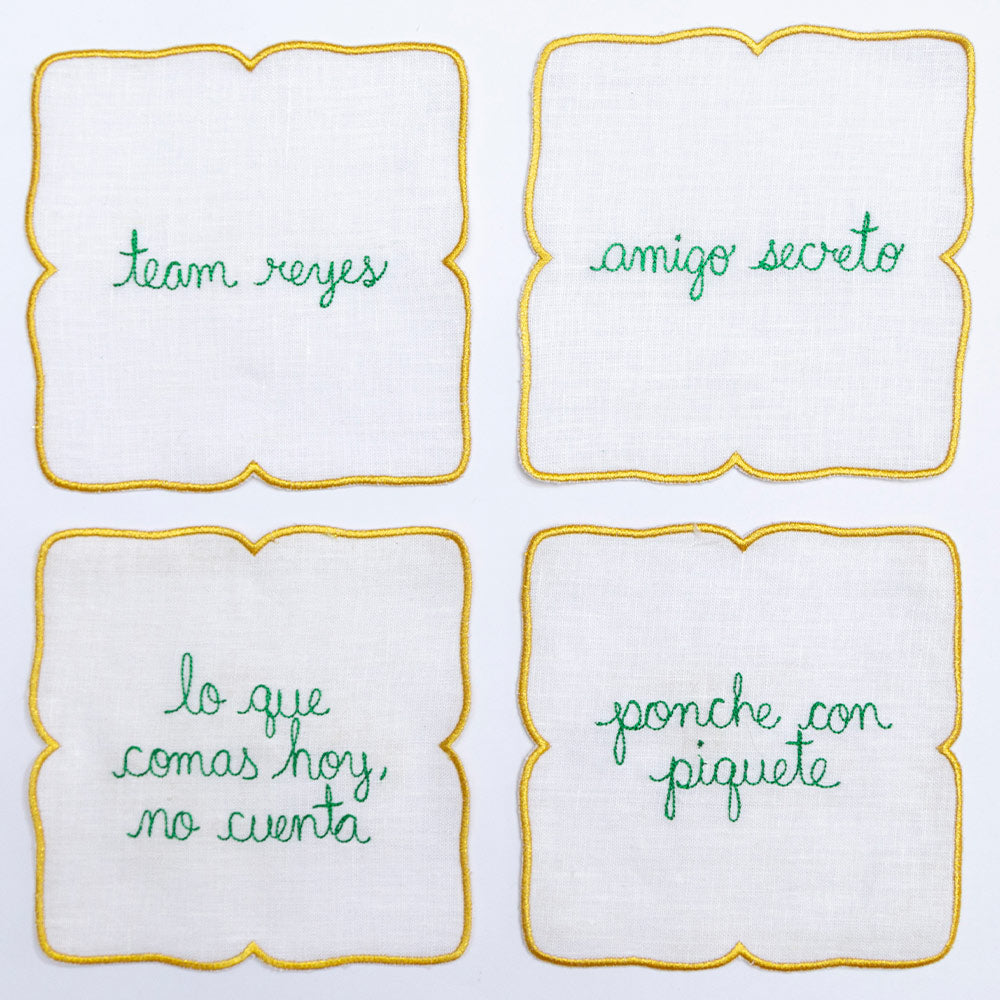 team reyes
amigo secreto
lo que
comas hoy,
no cuenta
ponche con
piquete